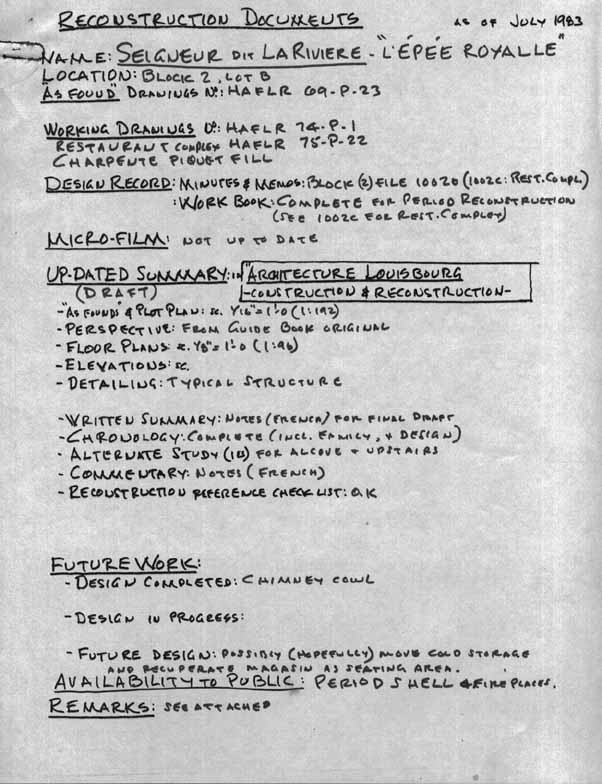 RECONSTRUCTION DOCUMENTS AS OF JULY 1983
NAME: SEIGNEUR DIT LARIVIERE - "L'ÉPÉE ROYALLE"
LOCATION: BLOCK 2, LOT B
"AS FOUND" DRAWINGS Nº: HAFLR 69-P-23
WORKING DRAWINGS Nº: HAFLR 74-P-1
RESTAURANT COMPLEX HAFLR 75-P-22
CHARPENTE PIQUET FILL
DESIGN RECORD: MINUTES & MEMOS: BLOCK (2) FILE 1002B (1002C: REST. COMPL)
: WORK BOOK: COMPLETE FOR PERIOD RECONSTRUCTION
(SEE 1002C FOR REST. COMPLEX)
MICRO-FILM: NOT UP TO DATE
UP-DATED SUMMARY: in "ARCHITECTURE LOUISBOURG
(DRAFT) -CONSTRUCTION & RECONSTRUCTION-
- "AS FOUND" & PLOT PLAN: sc. 1/16"= 1'-0 (1:192)
- PERSPECTIVE: FROM GUIDE BOOK ORIGINAL
- FLOOR PLANS: sc. 1/8"= 1'-0 (1:96)
- ELEVATIONS: sc.
- DETAILING: TYPICAL STRUCTURE
- WRITTEN SUMMARY: NOTES (FRENCH) FOR FINAL DRAFT
- CHRONOLOGY: COMPLETE (INCL. FAMILY, & DESIGN)
- ALTERNATE STUDY FOR ALCOVE & UPSTAIRS
- COMMENTARY: NOTES (FRENCH)
- RECONSTRUCTION REFERENCE CHECK LIST: OK
FUTURE WORK:
- DESIGN COMPLETED: CHIMNEY COWL
- DESIGN IN PROGRESS:
- FUTURE DESIGN: POSSIBLY (HOPEFULLY) MOVE COLD STORAGE
AND RECUPERATE MAGASIN AS SEATING AREA.
AVAILABILITY TO PUBLIC: PERIOD SHELL & FIREPLACES.
REMARKS: SEE ATTACHED